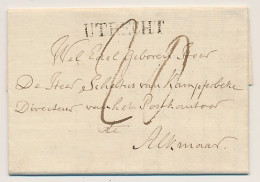 UTRECHT
Wel Edel Geboren Heer
De Heer van
Directeur van het Postkantoor
te
Alkmaar